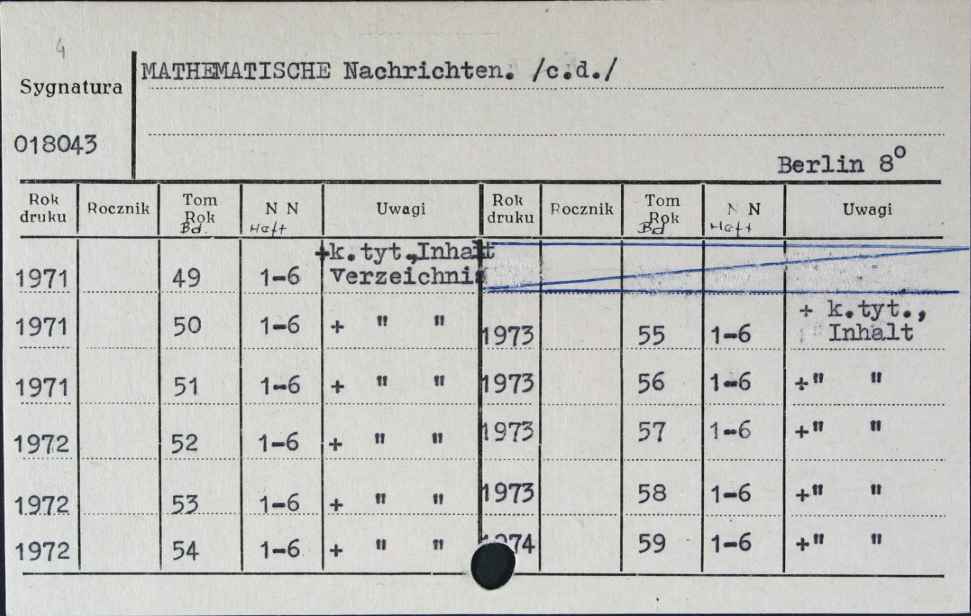 4
Sygnatura
MATHEMATISCHE Nachrichten. /c.d./
018043
Berlin 8°
Rok druku Rocznik Tom Rok Bd. N N Heft Uwagi Rok druku Rocznik Tom Rok Bd N N Heft Uwagi
1971 49 1-6 +k.tyt.,Inhalt
Verzeichnis
1971 50 1-6 + " "
1973 55 1-6 + k.tyt.,
Inhalt
1971 51 1-6 + " " 1973 56 1-6 +" "
1972 52 1-6 + " " 1973 57 1-6 +" "
1972 53 1-6 + " " 1973 58 1-6 +" "
1972 54 1-6 + " " 1974 59 1-6 +" "